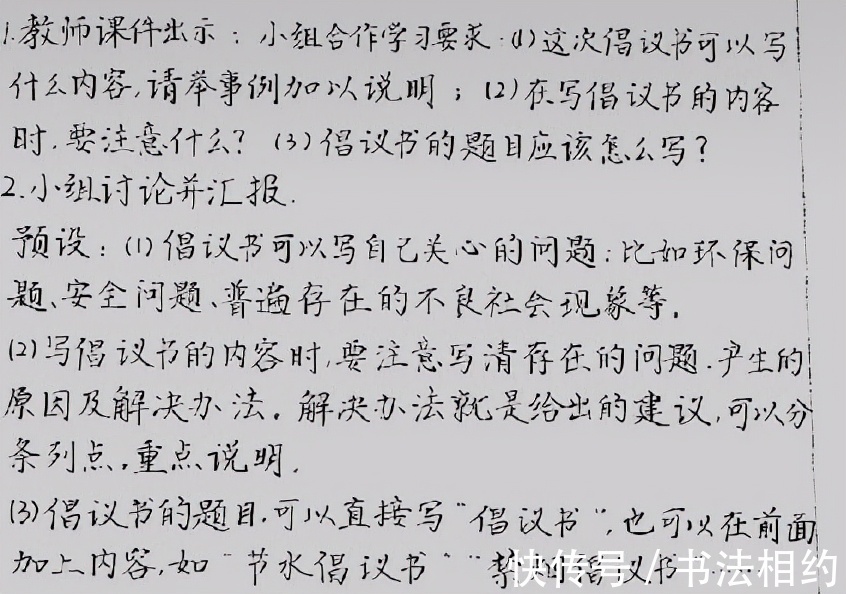 1.教师课件出示：小组合作学习要求：(1)这次倡议书可以写
什么内容，请举事例加以说明；(2)在写倡议书的内容
时，要注意什么？(3)倡议书的题目应该怎么写？
2.小组讨论并汇报.
预设：(1)倡议书可以写自己关心的问题：比如环保问
题、安全问题、普遍存在的不良社会现象等.
(2)写倡议书的内容时，要注意写清存在的问题.产生的
原因及解决办法。解决办法就是给出的建议，可以分
条列点，重点说明.
(3)倡议书的题目.可以直接写“倡议书”，也可以在前面
加上内容，如“节水倡议书”“禁烟倡议书
快传号 / 书法相约